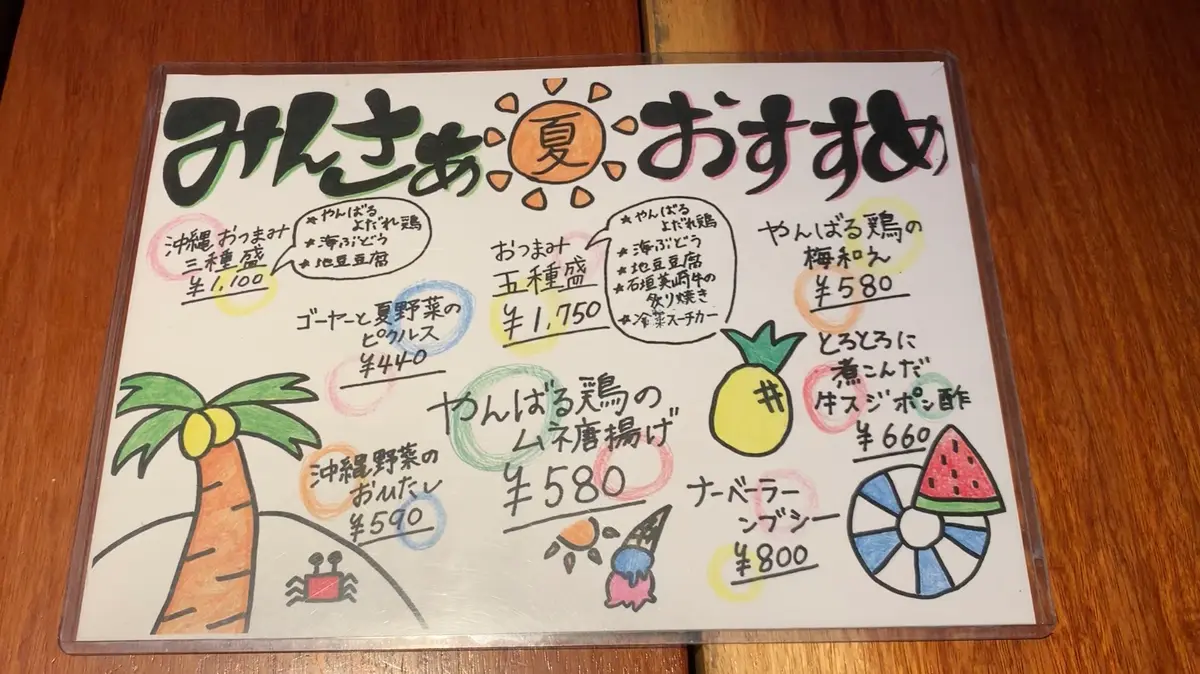 みんさぁ 夏 おすすめ
沖縄おつまみ
三種盛
¥1,100
★やんばる
よだれ鶏
★海ぶどう
★地豆豆腐
ゴーヤーと夏野菜の
ピクルス
¥440
沖縄野菜の
おひたし
¥590
おつまみ
五種盛
¥1,750
★やんばる
よだれ鶏
★海ぶどう
★地豆豆腐
★石垣美崎牛の
炙り焼き
★冷菜スーチカー
やんばる鶏の
ムネ唐揚げ
¥580
やんばる鶏の
梅和え
¥580
とろとろに
煮こんだ
牛スジポン酢
¥660
ナーベーラー
ンブシー
¥800